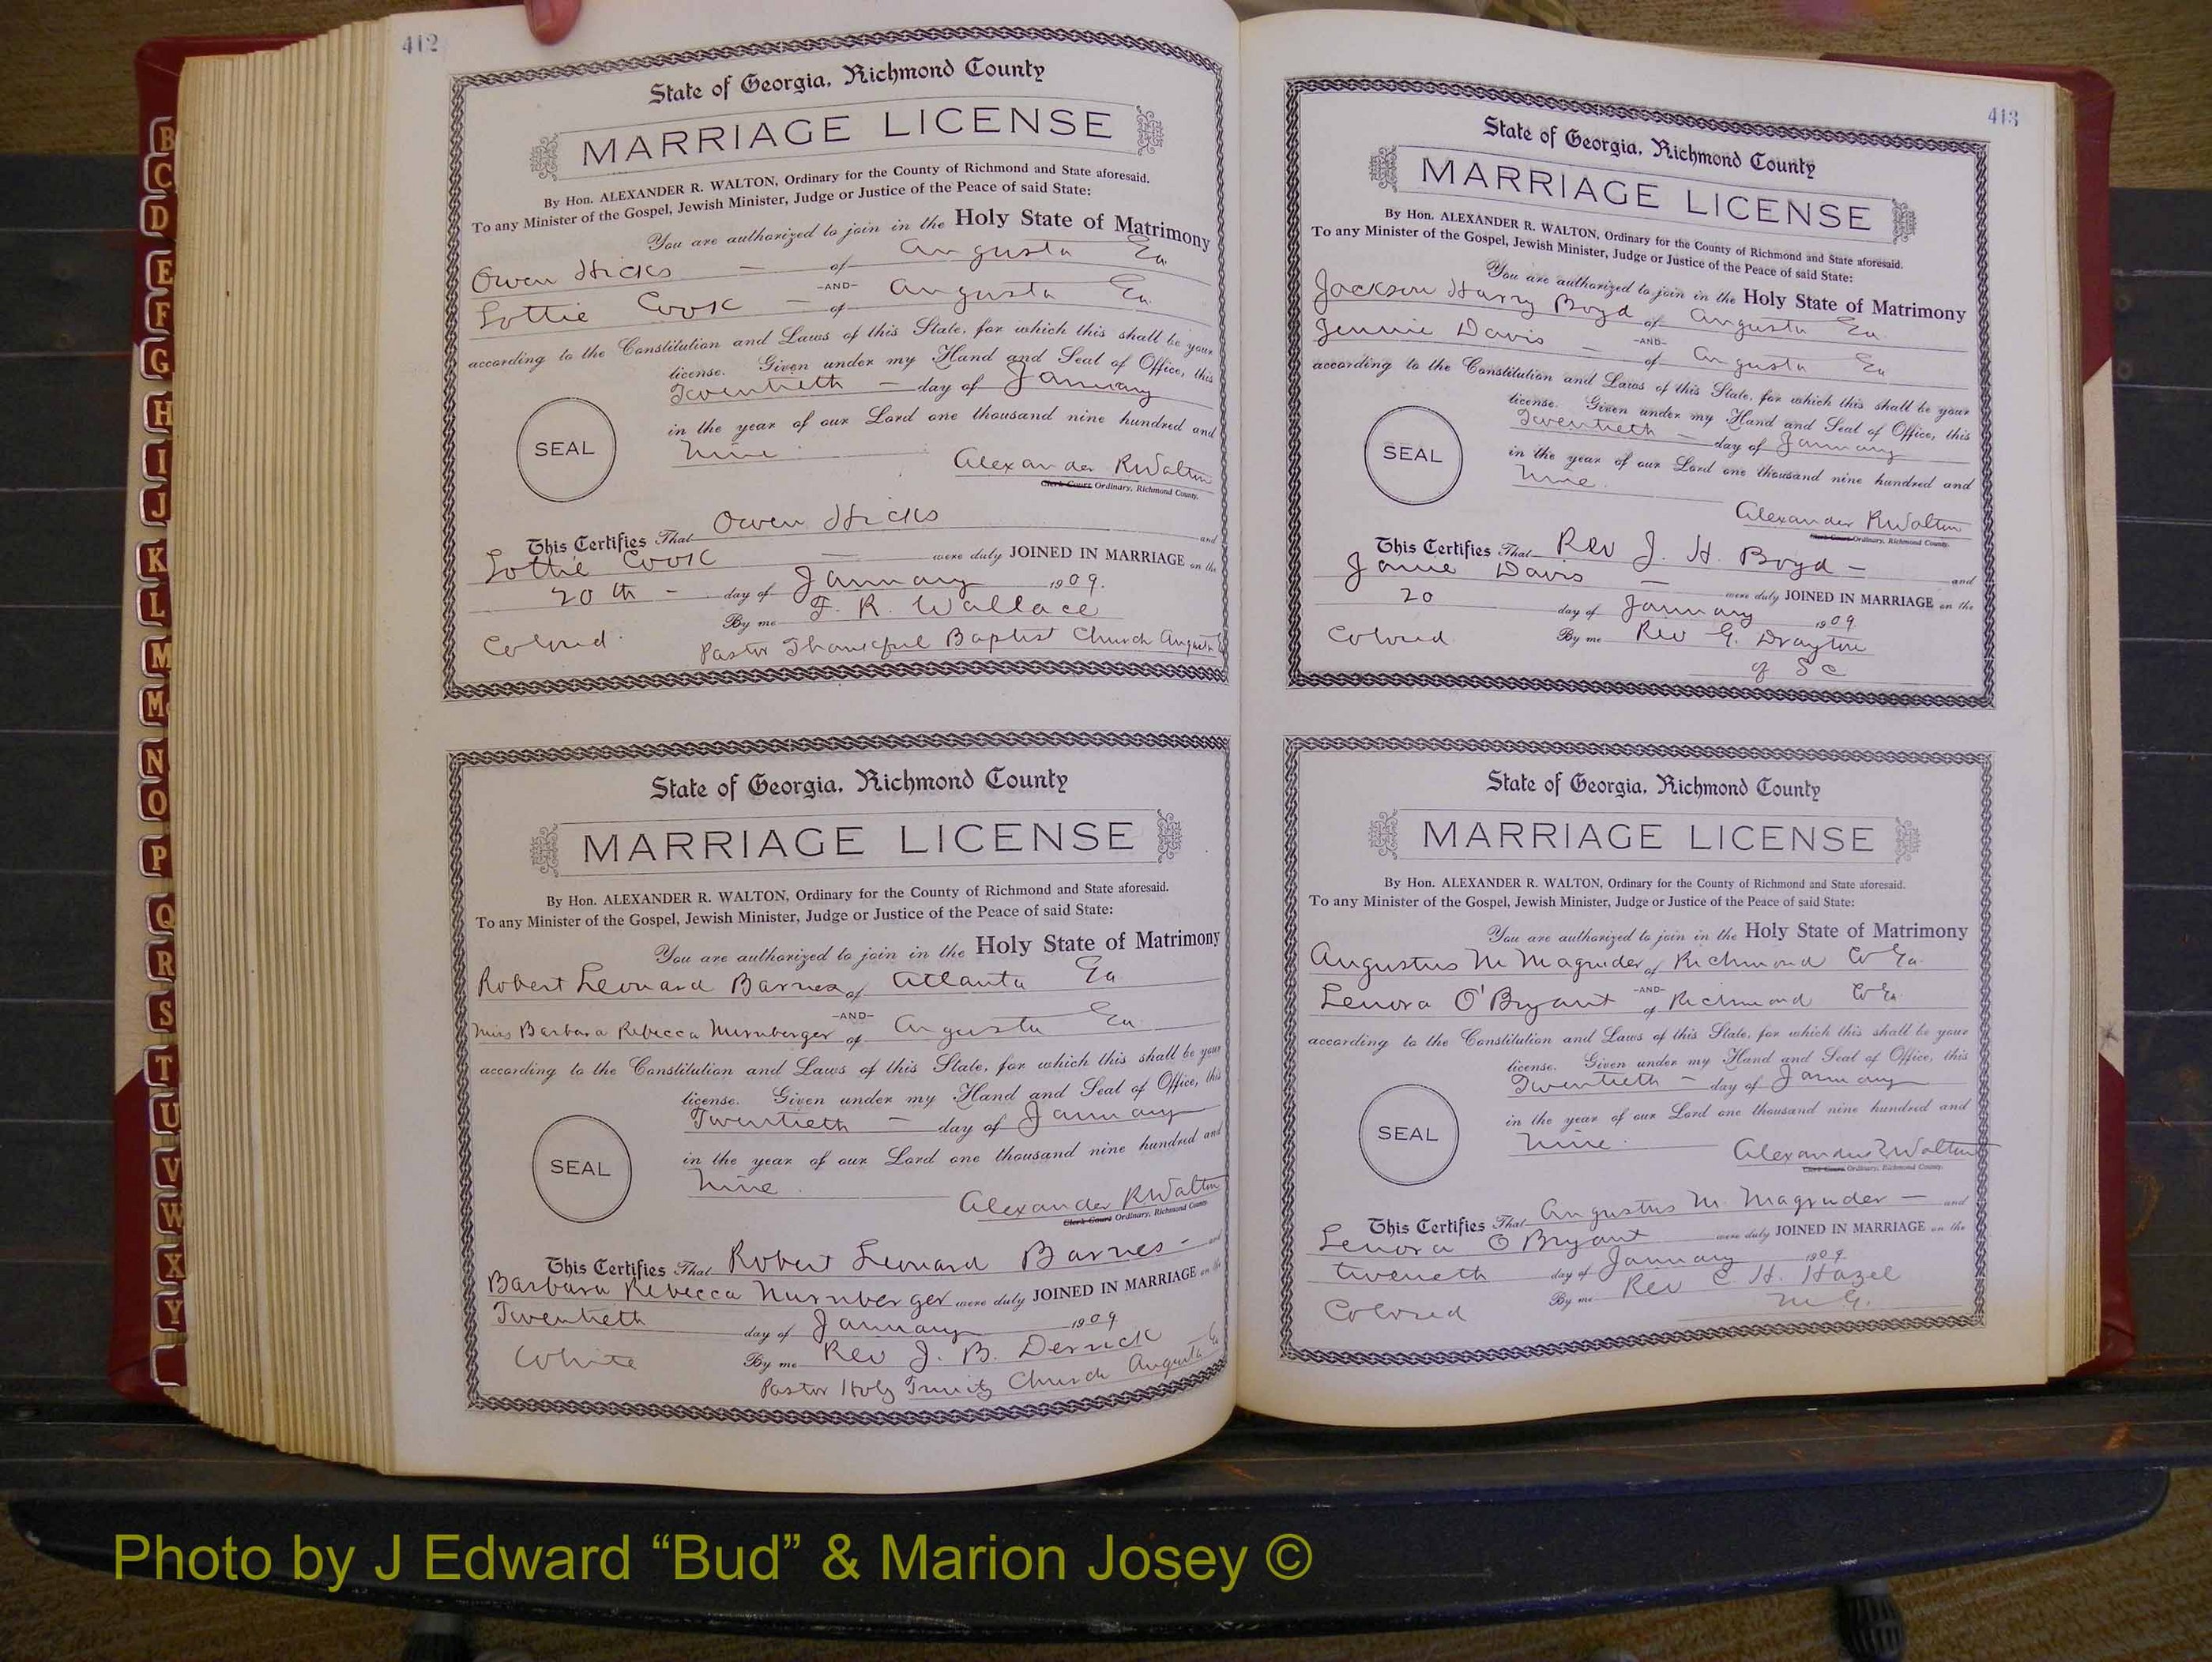 412
State of Georgia, Richmond County
MARRIAGE LICENSE
By Hon. ALEXANDER R. WALTON, Ordinary for the County of Richmond and State aforesaid.
To any Minister of the Gospel, Jewish Minister, Judge or Justice of the Peace of said State:
You are authorized to join in the Holy State of Matrimony
Owen Hicks — of Augusta Ga
-AND-
Lottie Cook — of Augusta Ga
according to the Constitution and Laws of this State, for which this shall be your
license. Given under my Hand and Seal of Office, this
Twentieth — day of January
in the year of our Lord one thousand nine hundred and
SEAL
nine
Alexander R Walton
Clerk Court Ordinary, Richmond County.
This Certifies That Owen Hicks and
Lottie Cook — were duly JOINED IN MARRIAGE on the
20th - day of January 1909.
By me F. R. Wallace
Colored Pastor Thankful Baptist Church Augusta Ga
State of Georgia, Richmond County
MARRIAGE LICENSE
By Hon. ALEXANDER R. WALTON, Ordinary for the County of Richmond and State aforesaid.
To any Minister of the Gospel, Jewish Minister, Judge or Justice of the Peace of said State:
You are authorized to join in the Holy State of Matrimony
Robert Leonard Barnes of Atlanta Ga
-AND-
Miss Barbara Rebecca Nurnberger of Augusta Ga
according to the Constitution and Laws of this State, for which this shall be your
license. Given under my Hand and Seal of Office, this
Twentieth — day of January
in the year of our Lord one thousand nine hundred and
SEAL
nine
Alexander R Walton
Clerk Court Ordinary, Richmond County
This Certifies That Robert Leonard Barnes - and
Barbara Rebecca Nurnberger were duly JOINED IN MARRIAGE on the
Twentieth day of January 1909
White By me Rev J. B. Derrick
Pastor Holy Trinity Church Augusta Ga
413
State of Georgia, Richmond County
MARRIAGE LICENSE
By Hon. ALEXANDER R. WALTON, Ordinary for the County of Richmond and State aforesaid.
To any Minister of the Gospel, Jewish Minister, Judge or Justice of the Peace of said State:
You are authorized to join in the Holy State of Matrimony
Jackson Harry Boyd of Augusta Ga
-AND-
Jennie Davis — of Augusta Ga
according to the Constitution and Laws of this State, for which this shall be your
license. Given under my Hand and Seal of Office, this
Twentieth — day of January
in the year of our Lord one thousand nine hundred and
SEAL
nine.
Alexander R Walton
Clerk Court Ordinary, Richmond County.
This Certifies That Rev J. H. Boyd — and
Janie Davis — were duly JOINED IN MARRIAGE on the
20 day of January 1909
Colored By me Rev G. Drayton
of S C
State of Georgia, Richmond County
MARRIAGE LICENSE
By Hon. ALEXANDER R. WALTON, Ordinary for the County of Richmond and State aforesaid.
To any Minister of the Gospel, Jewish Minister, Judge or Justice of the Peace of said State:
You are authorized to join in the Holy State of Matrimony
Augustus M Magruder of Richmond Co Ga.
-AND-
Lenora O'Bryant of Richmond Co Ga
according to the Constitution and Laws of this State, for which this shall be your
license. Given under my Hand and Seal of Office, this
Twentieth — day of January
in the year of our Lord one thousand nine hundred and
SEAL
nine.
Alexander R Walton
Clerk Court Ordinary, Richmond County.
This Certifies That Augustus M. Magruder — and
Lenora O Bryant were duly JOINED IN MARRIAGE on the
tweneth day of January 1909
By me Rev C H. Hazel
Colored M. G.
B
C
D
E
F
G
H
I
J
K
L
M
Mc
N
O
P
Q
R
S
T
U
V
W
X
Y
Photo by J Edward “Bud” & Marion Josey ©